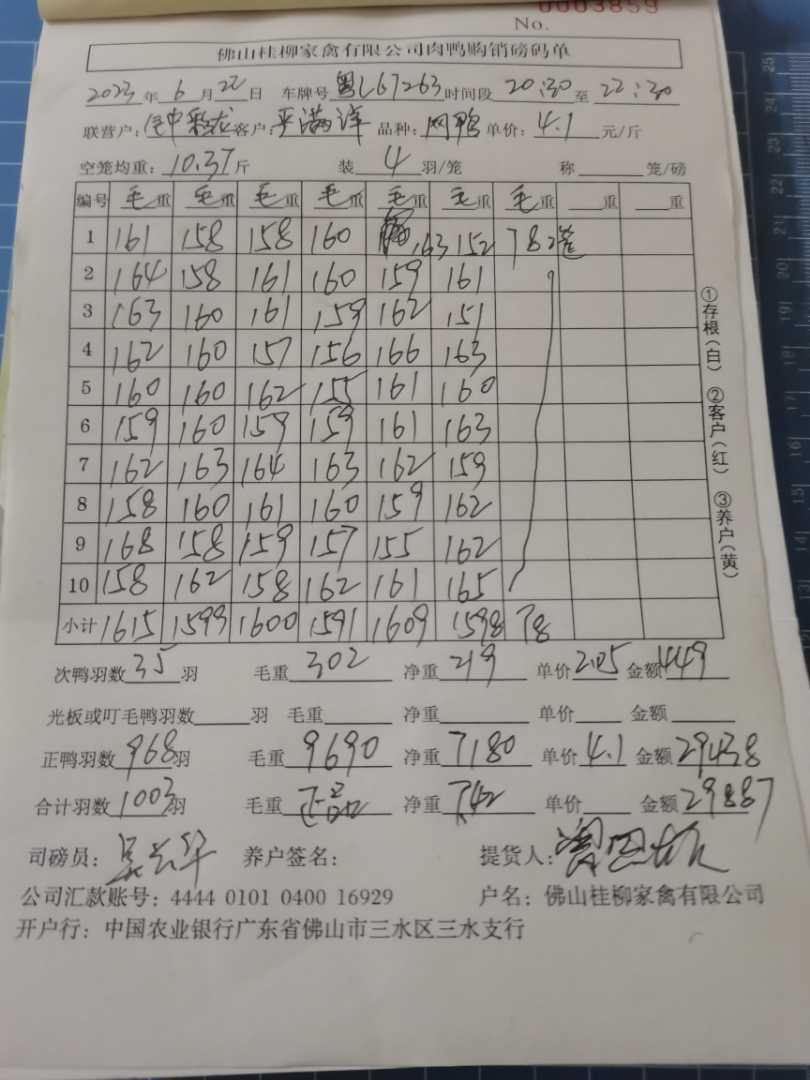 0003859
No.
佛山桂柳家禽有限公司肉鸭购销磅码单
2023年6月22日 车牌号粤L67263时间段20:30至22:30
联营户: 客户: 品种: 单价:4.1元/斤
空笼均重:10.37斤 装4羽/笼 称 笼/磅
编号 毛重 毛重 毛重 毛重 毛重 毛重 毛重 重 重
1 161 158 158 160 163 152 78
2 164 158 161 160 159 161
3 163 160 161 159 162 151
4 162 160 157 156 166 163
5 160 160 162 155 161 160
6 159 160 159 159 161 163
7 162 163 164 163 162 159
8 158 160 161 160 159 162
9 168 158 159 157 155 162
10 158 162 158 162 161 165
小计 1615 1599 1600 1591 1609 1598 78
次鸭羽数35羽 毛重302 净重219 单价2.05 金额449
光板或叮毛鸭羽数 羽 毛重 净重 单价 金额
正鸭羽数968羽 毛重9690 净重7180 单价4.1 金额29438
合计羽数1003羽 毛重 净重 单价 金额29887
司磅员: 养户签名: 提货人:
公司汇款账号: 4444 0101 0400 16929 户名: 佛山桂柳家禽有限公司
开户行: 中国农业银行广东省佛山市三水区三水支行
①存根(白) ②客户(红) ③养户(黄)